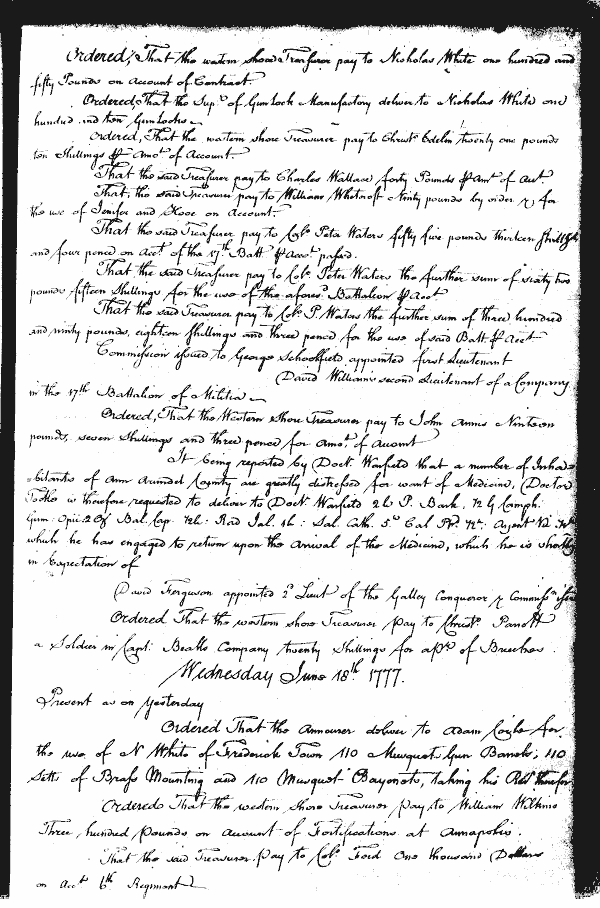 Ordered, That the western shore Treasurer pay to Nicholas White one hundred and
fifty Pounds on Account of Contract.
Ordered, That the Sup.r of Gunlock Manufactory deliver to Nicholas White one
hundred and ten Gunlocks
Ordered, That the western shore Treasurer pay to Christ.r Edelin twenty one pounds
ten Shillings p Amo.t of Account.
That the said Treasurer pay to Charles Wallace forty Pounds p Am.t of Acct.
That the said Treasurer pay to William Whitcroft Ninty pounds by order & for
the use of Jenifer and Hooe on Account.
That the said Treasurer pay to Col.o Peter Waters fifty five pounds thirteen shillgs
and four pence on Acct. of the 17.th Batt p Acco.t passed.
That the said Treasurer pay to Col.o Peter Waters the further sum of sixty two
pounds fifteen Shillings for the use of the afores.d Battalion p Acct
That the said Treasurer pay to Col.o P. Waters the further sum of three hundred
and ninty pounds, eighteen shillings and three pence for the use of said Batt p Acct
Commission issued to George Schoolfield appointed first Lieutenant
David Williams second Lieutenant of a Company
in the 17th Battalion of Militia
Ordered, That the Western Shore Treasurer pay to John Annis Nineteen
pounds, seven Shillings and three pence for Amo.t of Account
It being reported by Doct. Warfield that a number of Inha=
=bitants of Ann Arundel County are greatly distressed for want of Medicine, Doctor
Tootle is therefore requested to deliver to Doct. Warfield 2 lb P. Bark, Camph:
Gum: Opii: Bal. Cap. Rad Jal. Sal. Cath. Cal
which he has engaged to return upon the arrival of the Medicine, which he is shortly
in Expectation of
David Ferguson appointed 2.d Lieut of the Galley Conqueror & Commiss.n issued
Ordered That the western shore Treasurer Pay to Christ.r Parrott
a Soldier in Capt: Beatts Company twenty Shillings for a p.r of Breeches
Wednesday June 18th 1777.
Present as on Yesterday
Ordered That the Armourer deliver to Adam Coyle for
the use of N White of Frederick Town 110 Musquet Gun Barrels, 110
Setts of Brass Mounting and 110 Musquet Bayonets, taking his Rect therefor
Ordered That the western shore Treasurer Pay to William Wilkins
Three hundred Pounds on Account of Fortifications at Annapolis.
That the said Treasurer Pay to Col.o Ford One thousand Dollars
on Acct 6th Regiment